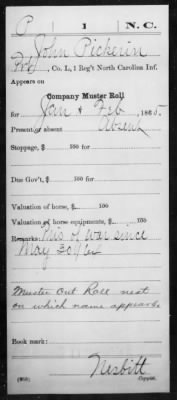 P | 1 | N.C.
John Pickerin
Pvt, Co. L, 1 Reg't North Carolina Inf.
Appears on
Company Muster Roll
for Jan & Feb, 1865.
Present or absent Absent
Stoppage, $ 100 for
Due Gov't, $ 100 for
Valuation of horse, $ 100
Valuation of horse equipments, $ 100
Remarks: Pris of war since
May 30/64
Muster Out Roll next
on which name appears.
Book mark:
Nesbitt
Copyist.